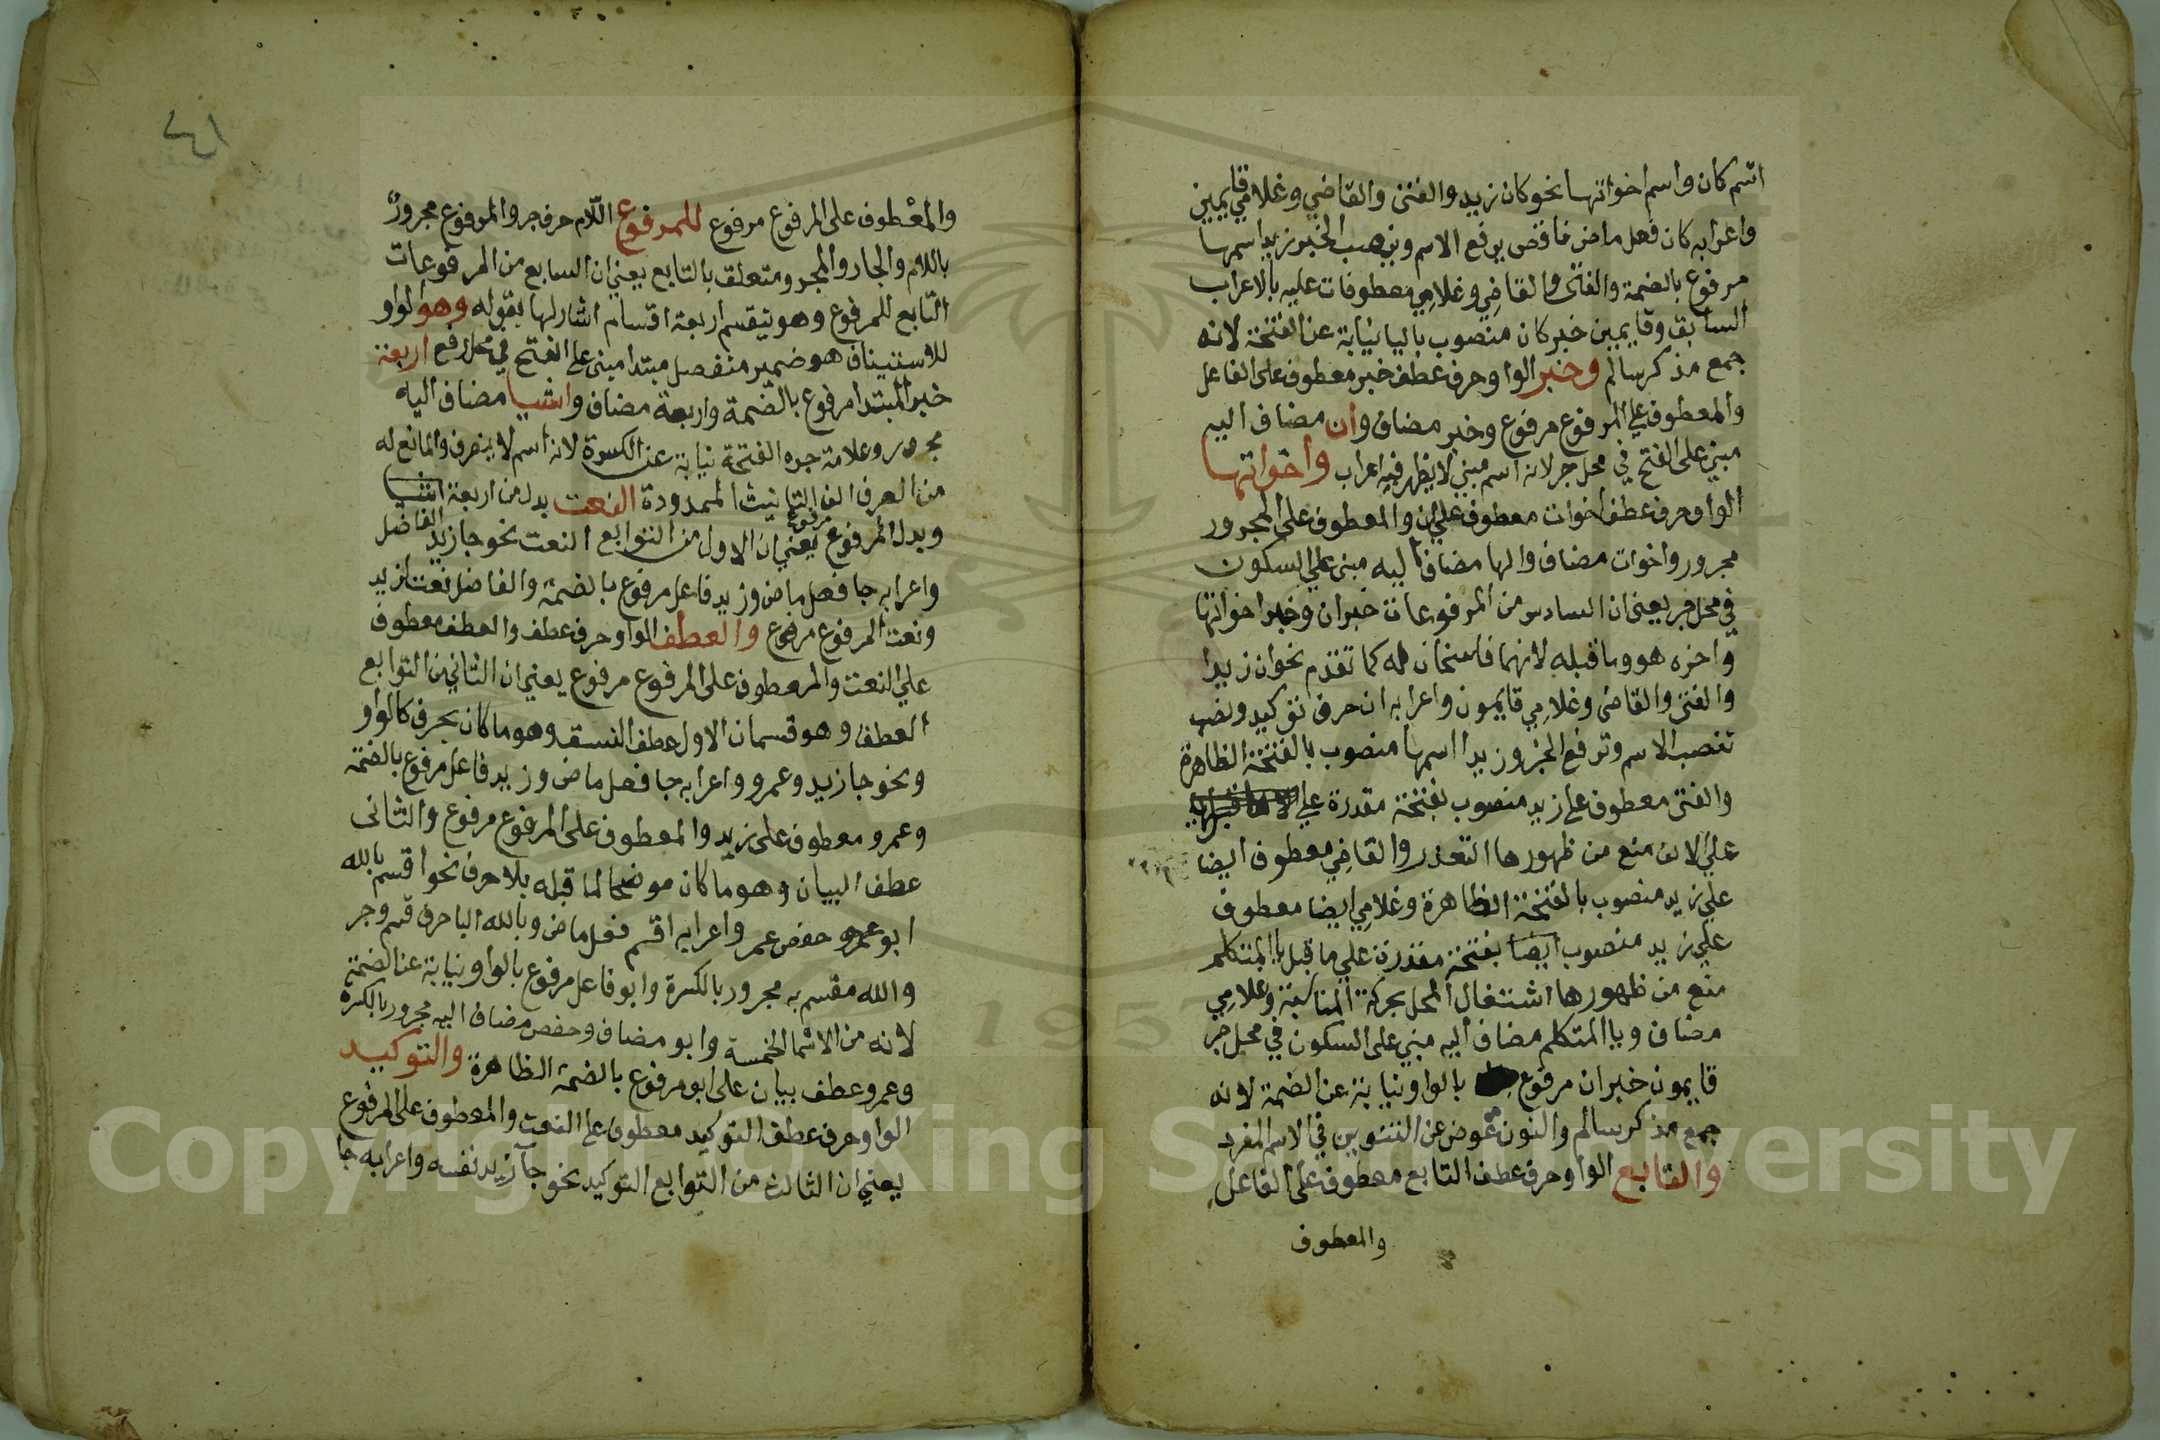 اسم كان واسم اخواتها نحو كان زيد والفتى والقاضي وغلامي قايمين
واعرابه كان فعل ماض ناقص يرفع الاسم وينصب الخبر زيد اسمها
مرفوع بالضمة والفتى والقاضي وغلامي معطوفات عليه بالاعراب
السابق وقايمين خبر كان منصوب باليا نيابة عن الفتحة لانه
جمع مذكر سالم وخبر الواو حرف عطف خبر معطوف على الفاعل
والمعطوف علي المرفوع مرفوع وخبر مضاف وان مضاف اليه
مبني على الفتح في محل جر لانه اسم مبني لا يظهر فيه اعراب واخواتها
الواو حرف عطف اخوات معطوف علي ان والمعطوف على المجرور
مجرور واخوات مضاف والها مضاف اليه مبنى علي السكون
في محل جر يعني ان السادس من المرفوعات خبر ان وخبر اخواتها
واخره هو وما قبله لانهما ناسخان له كما تقدم نحو ان زيدا
والفتى والقاضى وغلامي قايمون واعرابه ان حرف توكيد ونصب
تنصب الاسم وترفع الخبر وزيدا اسمها منصوب بالفتحة الظاهرة
والفتى معطوف علي زيد منصوب بفتحة مقدرة علي
علي الالف منع من ظهورها التعذر والقاضي معطوف ايضا
علي زيد منصوب بالفتحة الظاهرة وغلامي ايضا معطوف
علي زيد منصوب ايضا بفتحة مقدرة علي ما قبل يا المتكلم
منع من ظهورها اشتغال المحل بحركة المناسبة وغلامي
مضاف ويا المتكلم مضاف اليه مبني على السكون في محل جر
قايمون خبر ان مرفوع بالواو نيابة عن الضمة لانه
جمع مذكر سالم والنون عوض عن التنوين في الاسم المفرد
والتابع الواو حرف عطف التابع معطوف على الفاعل
والمعطوف
٤١
والمعطوف على المرفوع مرفوع للمرفوع اللام حرف جر والمرفوع مجرور
باللام والجار والمجرور متعلق بالتابع يعني ان السابع من المرفوعات
التابع للمرفوع وهو ينقسم اربعة اقسام اشار لها بقوله وهو الواو
للاستيناف هو ضمير منفصل مبتدا مبنى على الفتح في محل رفع اربعة
خبر المبتدا مرفوع بالضمة واربعة مضاف واشيا مضاف اليه
مجرور وعلامة جره الفتحة نيابة عن الكسرة لانه اسم لا ينصرف والمانع له
من الصرف الف التانيث الممدودة النعت بدل من اربعة اشيا
وبدل المرفوع مرفوع يعني ان الاول من التوابع النعت نحو جا زيد الفاضل
واعرابه جا فعل ماض وزيد فاعل مرفوع بالضمة والفاضل نعت لزيد
ونعت المرفوع مرفوع والعطف الواو حرف عطف والعطف معطوف
علي النعت والمعطوف على المرفوع مرفوع يعني ان الثاني من التوابع
العطف وهو قسمان الاول عطف النسق وهو ما كان بحرف كالواو
ونحو جا زيد وعمرو واعرابه جا فعل ماض وزيد فاعل مرفوع بالضمة
وعمرو معطوف على زيد والمعطوف على المرفوع مرفوع والثانى
عطف البيان وهو ما كان موضحا لما قبله بلا حرف نحو اقسم بالله
ابو حفص عمر واعرابه اقسم فعل ماض وبالله البا حرف قسم وجر
والله مقسم به مجرور بالكسرة وابو فاعل مرفوع بالواو نيابة عن الضمة
لانه من الاسما الخمسة وابو مضاف وحفص مضاف اليه مجرور بالكسرة
وعمرو عطف بيان على ابو مرفوع بالضمة الظاهرة والتوكيد
الواو حرف عطف التوكيد معطوف علي النعت والمعطوف على المرفوع
يعني ان الثالث من التوابع التوكيد نحو جآ زيد نفسه واعرابه جا
Copyright © King Saud University
1957